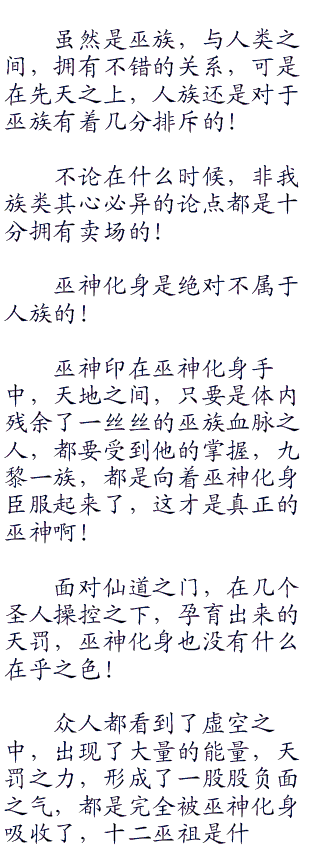 虽然是巫族，与人类之
间，拥有不错的关系，可是
在先天之上，人族还是对于
巫族有着几分排斥的！
不论在什么时候，非我
族类其心必异的论点都是十
分拥有卖场的！
巫神化身是绝对不属于
人族的！
巫神印在巫神化身手
中，天地之间，只要是体内
残余了一丝丝的巫族血脉之
人，都要受到他的掌握，九
黎一族，都是向着巫神化身
臣服起来了，这才是真正的
巫神啊！
面对仙道之门，在几个
圣人操控之下，孕育出来的
天罚，巫神化身也没有什么
在乎之色！
众人都看到了虚空之
中，出现了大量的能量，天
罚之力，形成了一股股负面
之气，都是完全被巫神化身
吸收了，十二巫祖是什